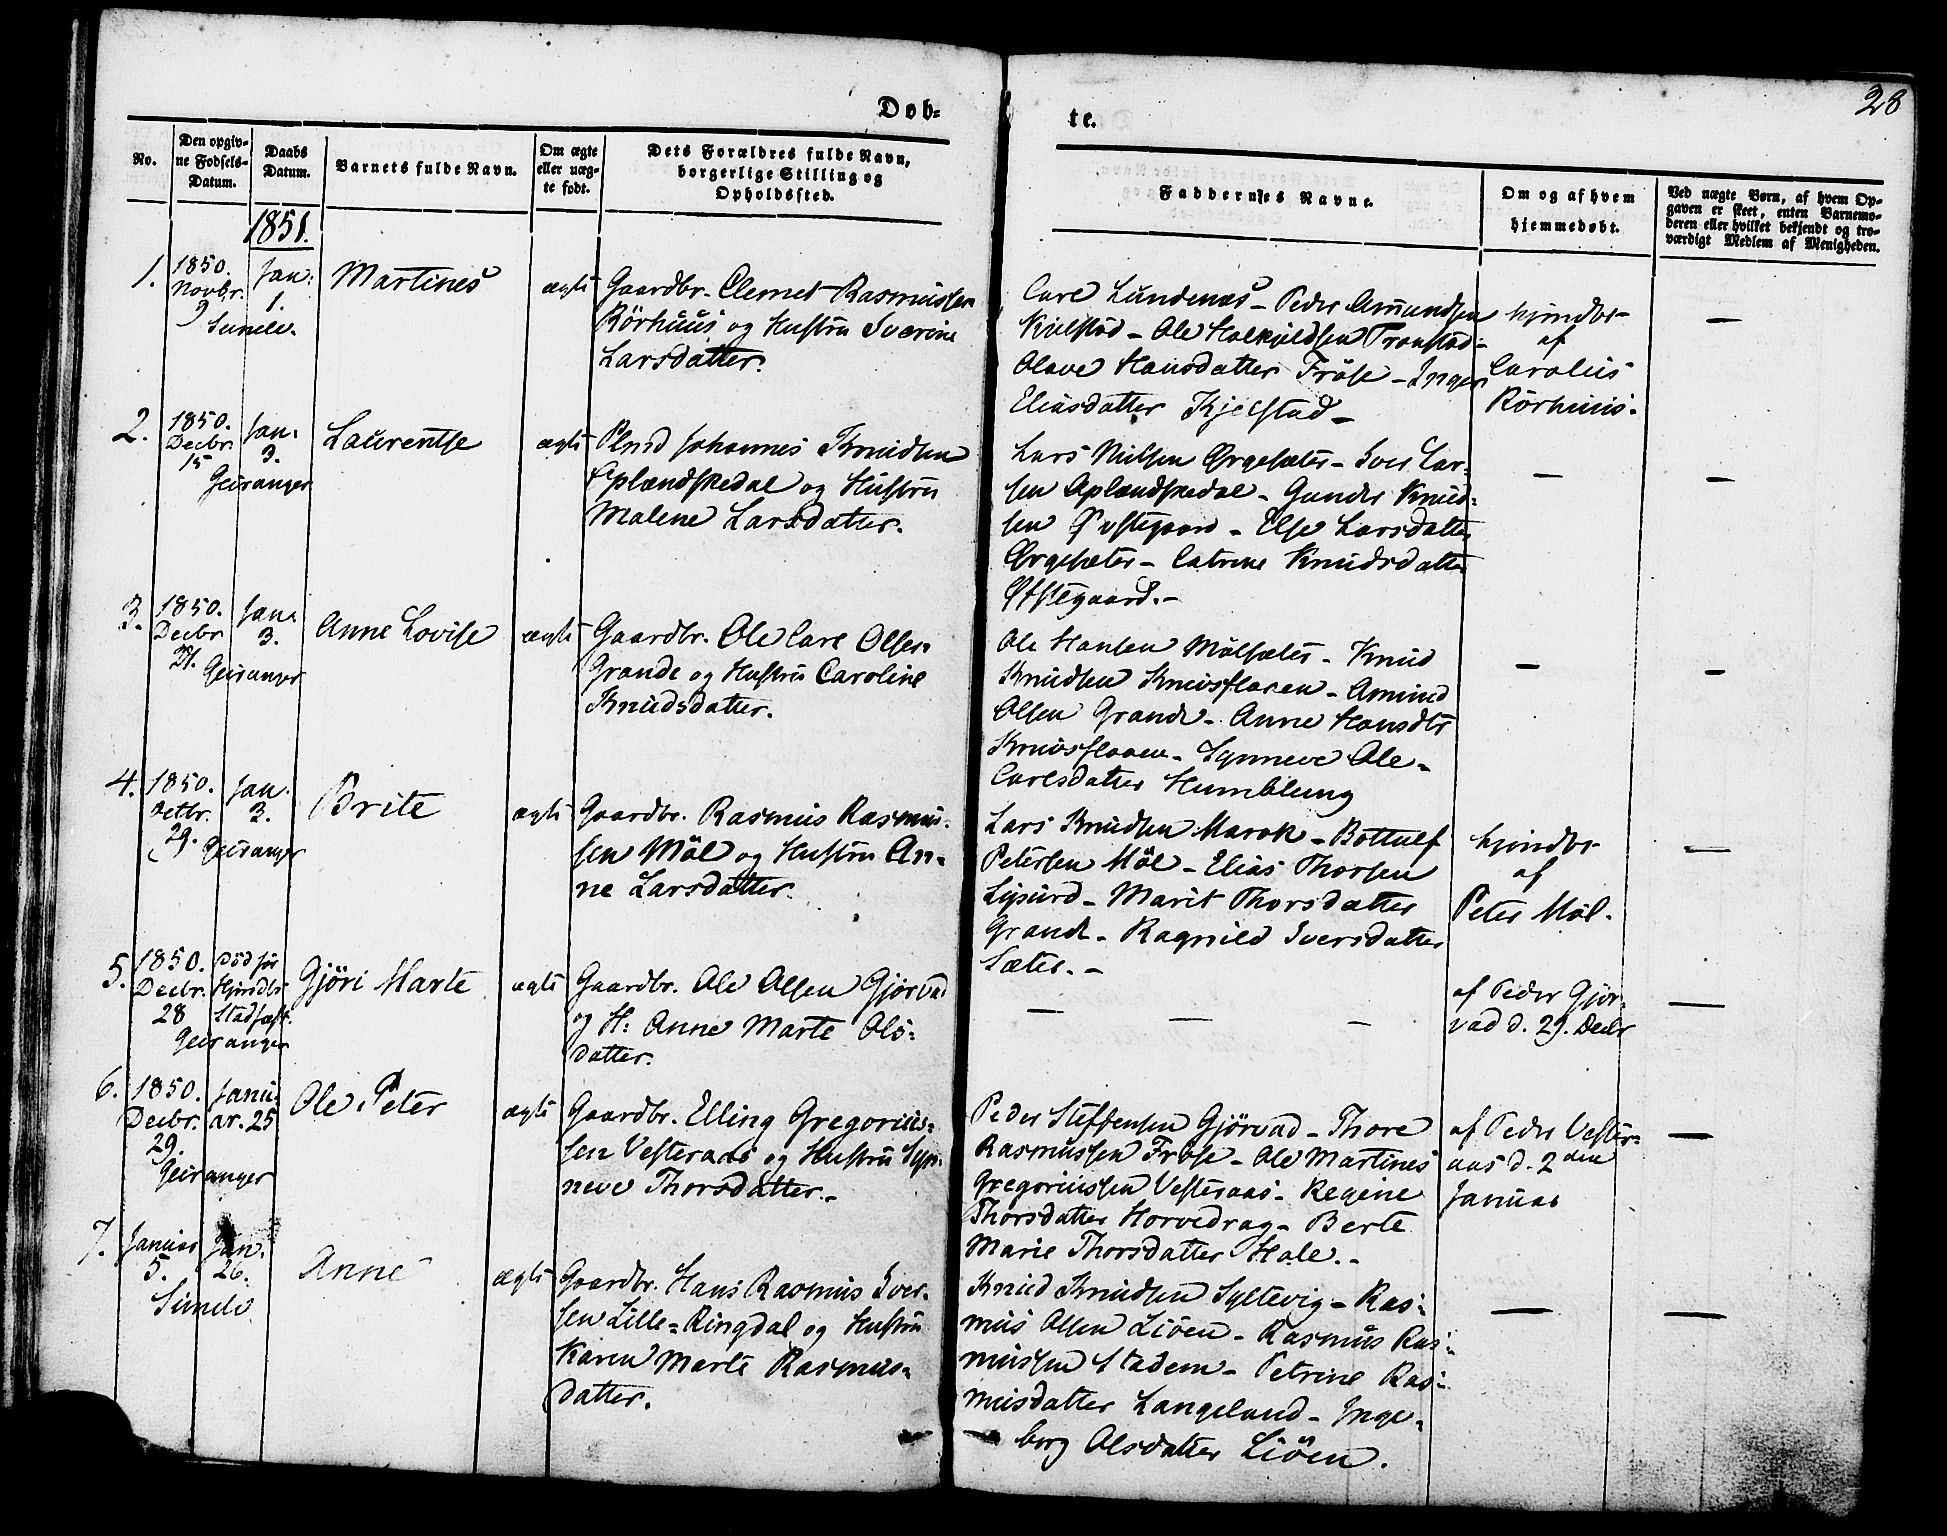 Døb-
te.
28
No.
Den opgiv-
ne Fødsels-
Datum.
Daabs
Datum.
Barnets fulde Navn.
Om ægte
eller uæg-
te født.
Dets Forældres fulde Navn,
borgerlige Stilling og
Opholdssted.
Faddernes Navne.
Om og af hvem
hjemmedøbt.
Ved uægte Børn, af hvem Op-
gaven er skeet, enten Barnemo-
deren eller hvilket bekjendt og tro-
værdigt Medlem af Menigheden.
1851.
1.
1850.
Novbr.
9
Sunelv.
Jan:
1.
Martinus
ægte
Gaardbr. Clemet Rasmussen
Rörhuus og Hustru Sverine
Larsdatter.
Carl Lundenæs - Peder Amundsen
Kielstad - Ole Holkjeldsen Tronstad -
Olave Hansdatter Fröse - Inger
Eliasdatter Kjelstad -
hjmdbt
af
Carolus
Rörhuus.
—
2.
1850.
Decbr.
15
Geiranger
Jan.
3.
Laurentse
ægte
Plmd Johannes Knudsen
Oplændskedal og Hustru
Malene Larsdatter.
Lars Nielsen Ørgesæter - Iver Lar-
sen Oplændskedal - Gunder Knud-
sen Øvstegaard - Else Larsdatter
Ørgesæter - Catrine Knudsdatter
Øfstegaard. -
—
—
3.
1850.
Decbr
21.
Geiranger
Jan.
3.
Anne Lovise
ægte
Gaardbr. Ole Carl Olsen
Grande og Hustru Caroline
Knudsdatter.
Ole Hansen Mölsæter - Knud
Knudsen Knivsflaaen - Amund
Olsen Grande - Anne Hansdtr
Knivsflaaen - Synneve Ole-
Carlsdatter Humblung
—
—
4.
1850.
Octbr.
29.
Geiranger
Jan.
3.
Brite
ægte
Gaardbr. Rasmus Rasmus-
sen Möl og Hustru An-
ne Larsdatter.
Lars Knudsen Marok - Bottulf
Petersen Möl - Elias Thorsen
Marit Thorsdatter
Grande - Ragnild Iversdatter
Sæter. -
hjmdbt
af
Peter Möl.
—
5.
1850.
Decbr.
28
Geiranger
Död för
Hjmdbs
Stadfæst.
Gjöri Marte
ægte
Gaardbr. Ole Olsen Gjörvad
og H: Anne Marte Ols-
datter.
— — —
af Peder Gjör-
vad d. 29. Decbr
—
6.
1850.
Decbr.
29.
Geiranger
Janu-
ar. 25
Ole Peter
ægte
Gaardbr. Elling Gregorius-
sen Vesteraas og Hustru Syn-
neve Thorsdatter. -
Peder Steffensen Gjörvad - Thore
Rasmussen Fröse - Ole Martinus
Gregoriussen Vesteraas - Regine
Thorsdatter Horvedrag - Berte
Marie Thorsdatter Hole. -
af Peder Vester-
aas d. 2den
Januar
—
7.
Januar
5.
Sunelv
Jan.
26.
Anne
ægte
Gaardbr. Hans Rasmus Iver-
sen Lille-Ringdal og Hustru
Karen Marte Rasmus-
datter.
Knud Knudsen Syltevig - Ras-
mus Olsen Liöen - Rasmus Ras-
mussen Stadem - Petrine Ras-
musdatter Langeland - Inge-
borg Olsdatter Liöen.
—
—